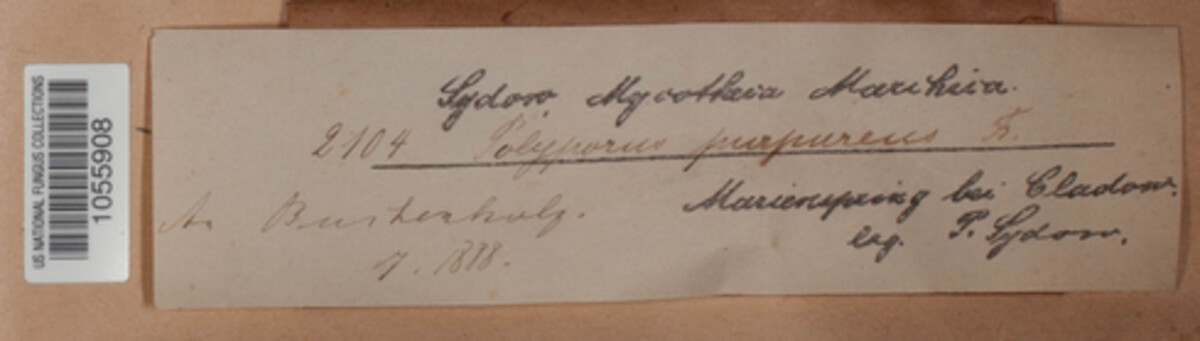 US NATIONAL FUNGUS COLLECTIONS
1055908
Sydow Mycotheca Marchica.
2104 Polyporus purpureus Fr.
An Birkenholz.
7. 1888.
Marienspring bei Cladow.
leg. P. Sydow.